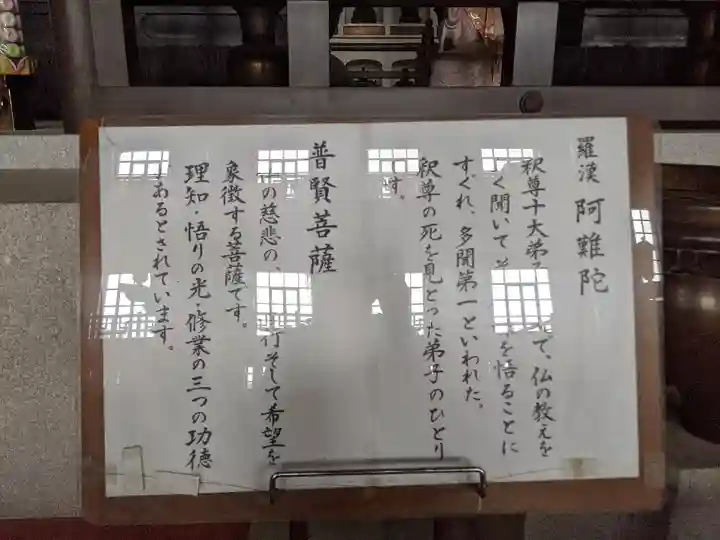 羅漢 阿難陀
釈尊十大弟 で、仏の教えを
く聞いて を悟ることに
すぐれ、多聞第一といわれた。
釈尊の死を見とった弟子のひとり
す。
普賢菩薩
の慈悲の、 行そして希望を
象徴する菩薩です。
理知・悟りの光・修業の三つの功徳
あるとされています。